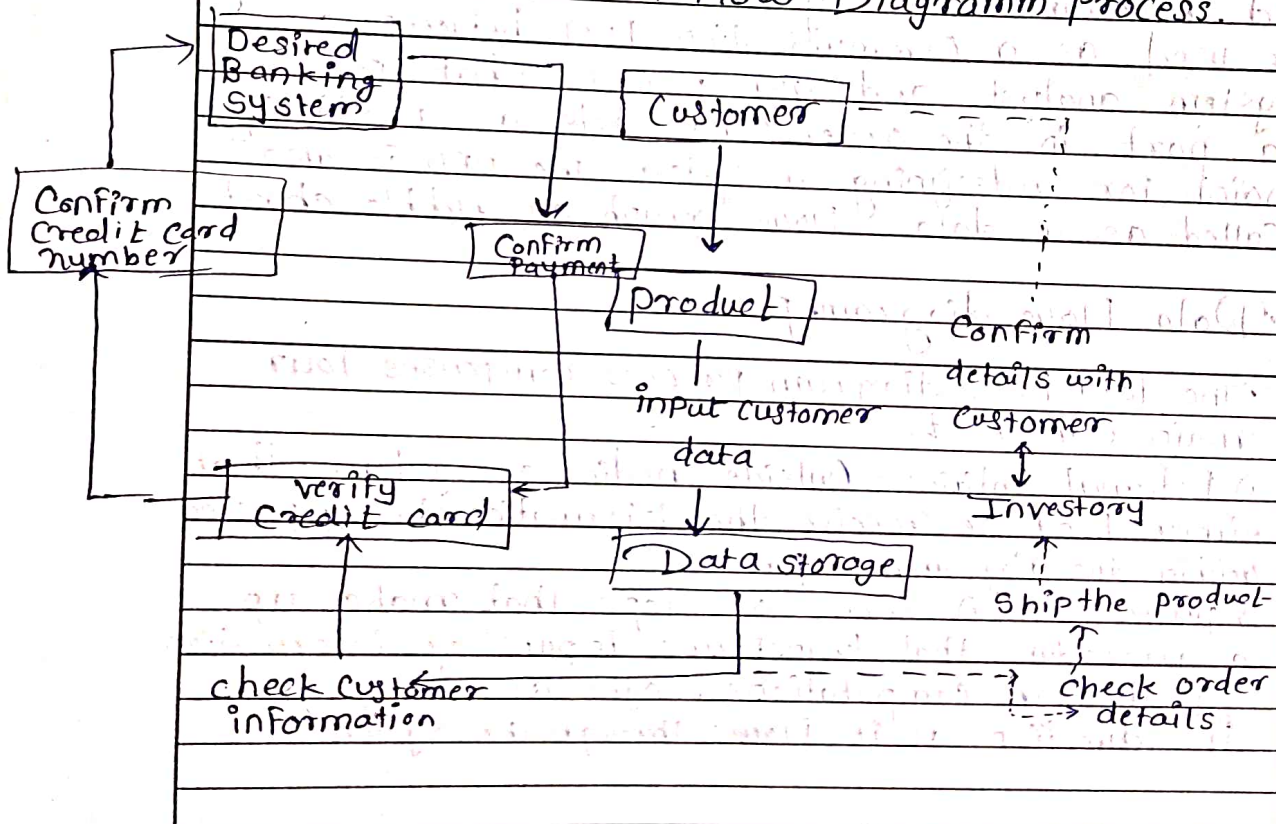 Flow Diagramm process.
Desired
Banking
system
Customer
Confirm
Credit card
number
Confirm
Payment
product
Confirm
details with
Customer
input customer
data
verify
Credit card
Investory
Data storage
Ship the product
check customer
information
check order
details.